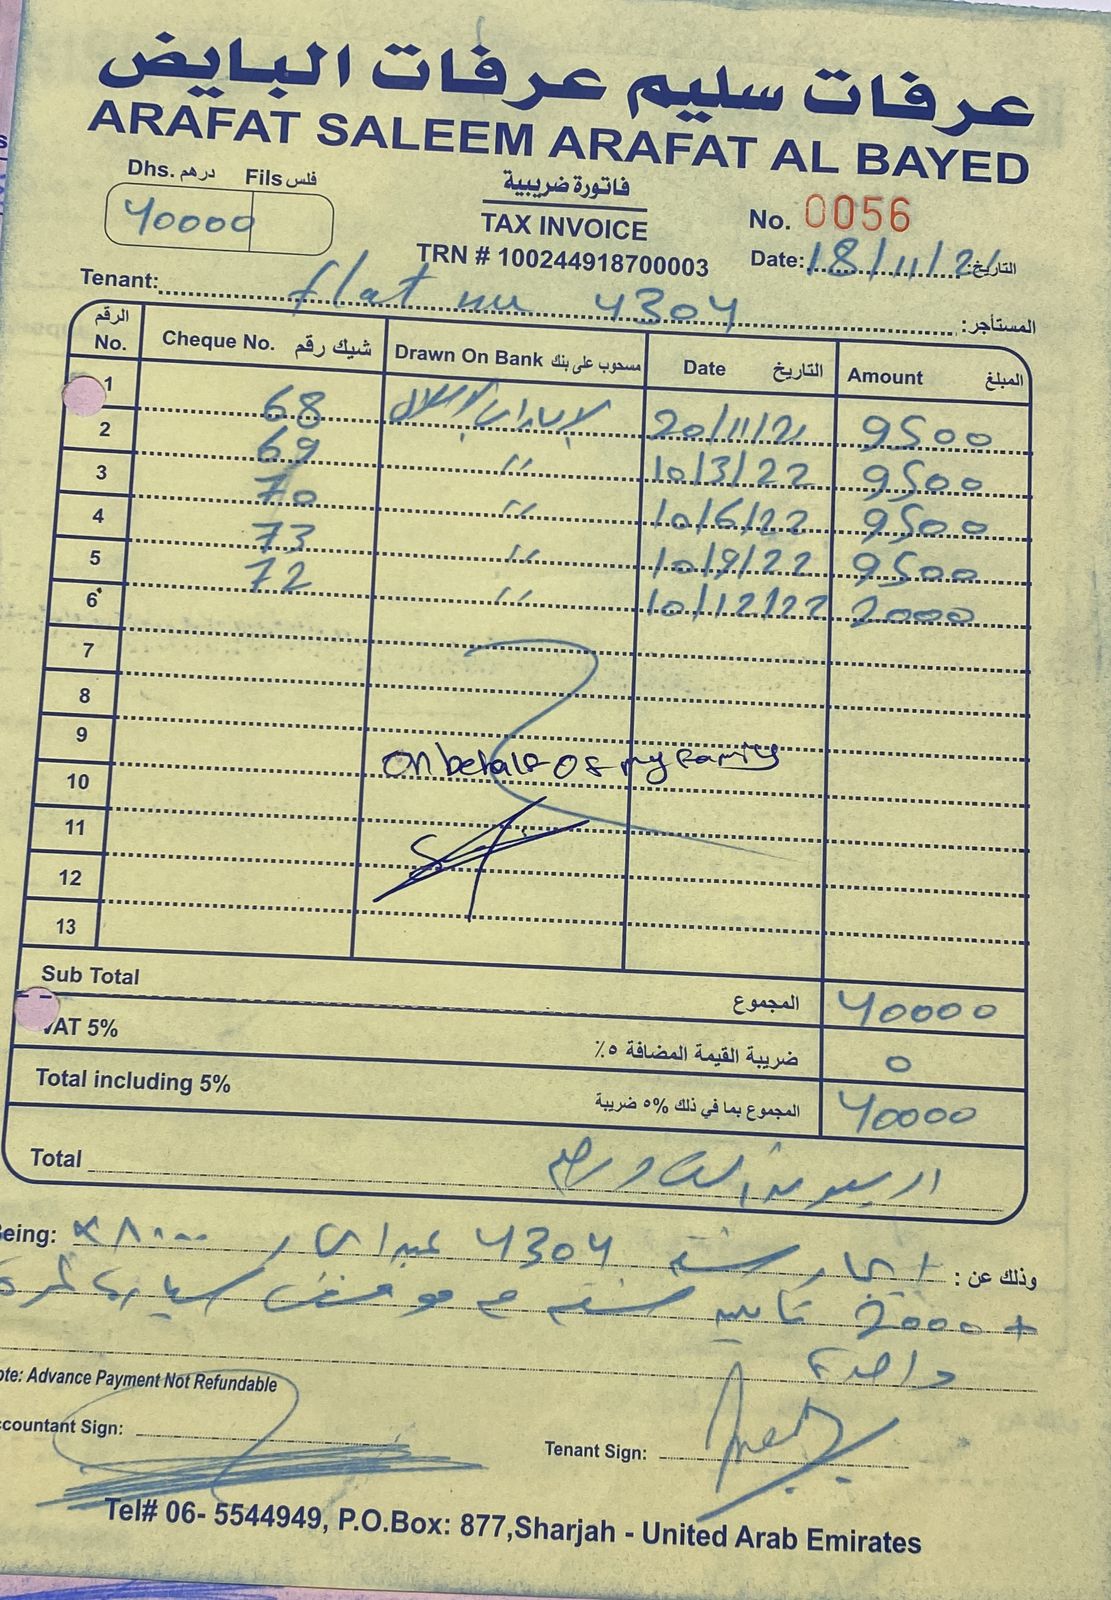 عرفات سليم عرفات البايض
ARAFAT SALEEM ARAFAT AL BAYED
Dhs. درهم Fils فلس
40000
فاتورة ضريبية
TAX INVOICE
TRN # 100244918700003
No. 0056
Date: 18/11/21 التاريخ:
Tenant: flat nu 4304 المستأجر:
الرقم No. Cheque No. شيك رقم Drawn On Bank مسحوب على بنك Date التاريخ Amount المبلغ
1 68 20/11/21 9500
2 69 " 10/3/22 9500
3 70 " 10/6/22 9500
4 73 " 10/9/22 9500
5 72 " 10/12/22 2000
6
7
8
9
On behalf of my family
10
11
12
13
Sub Total المجموع 40000
VAT 5% ضريبة القيمة المضافة ٥٪ 0
Total including 5% المجموع بما في ذلك 5% ضريبة 40000
Total
eing: وذلك عن : ايجار سنة 4304
+ 2000 تأمين
واحدة
ote: Advance Payment Not Refundable
ccountant Sign:
Tenant Sign:
Tel# 06- 5544949, P.O.Box: 877,Sharjah - United Arab Emirates